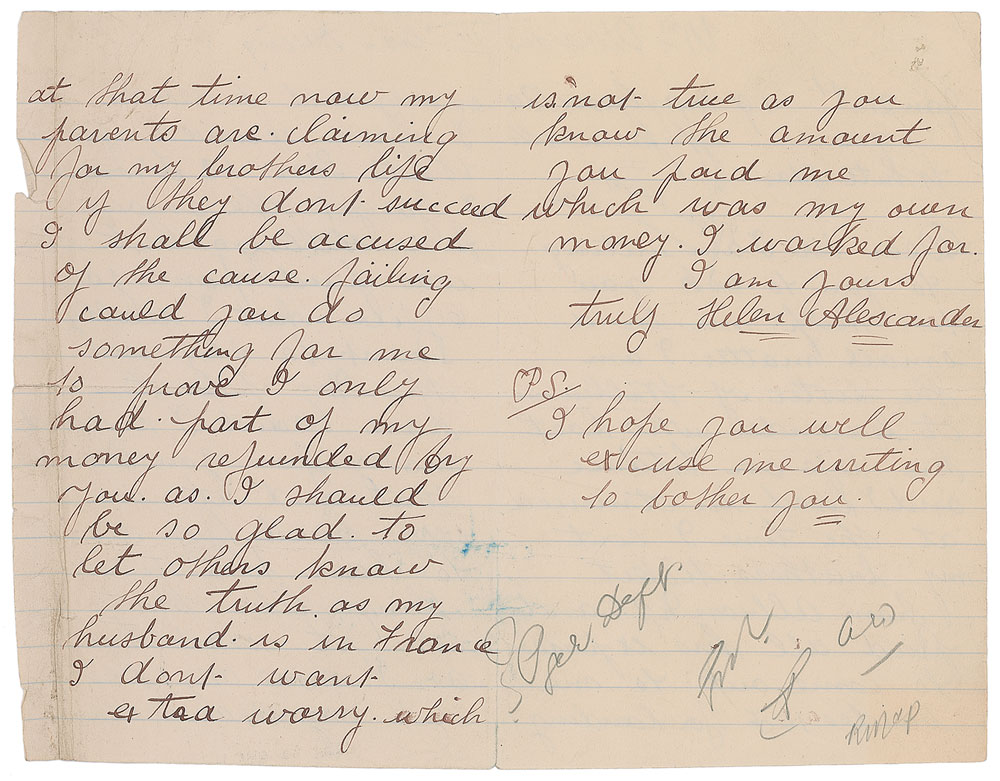 at that time now my
parents are. claiming
for my brothers life
if they dont succeed
I shall be accused
of the cause. failing
could you do
something for me
to prove I only
had. part of my
money refunded by
you. as. I should
be so glad. to
let others know
the truth. as my
husband. is in France
I dont want
extra worry. which
is not true as you
know the amount
you paid me
which was my own
money. I worked for.
I am yours
truly Helen Alexander
P.S.
I hope you will
excuse me writing
to bother you.
Dept